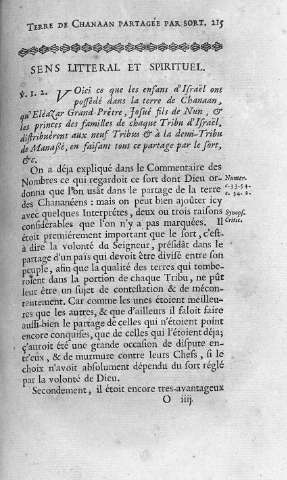 TERRE DE CHANAAN PARTAGÉE PAR SORT. 215
SENS LITTERAL ET SPIRITUEL.
ẏ. 1. 2. Voici ce que les enfans d'Israël ont
possédé dans la terre de Chanaan,
qu'Eléazar Grand Prêtre, Josué fils de Nun, &
les princes des familles de chaque Tribu d'Israël,
distribuèrent aux neuf Tribus & à la demi-Tribu
de Manassé, en faisant tout ce partage par le sort,
&c.
On a déja expliqué dans le Commentaire des
Nombres ce qui regardoit ce sort dont Dieu or-
donna que l'on usât dans le partage de la terre
des Chananéens : mais on peut bien ajoûter icy
avec quelques Interprétes, deux ou trois raisons
considerables que l'on n'y a pas marquées. Il
étoit premiérement important que le sort, c'est-
à dire la volonté du Seigneur, présidât dans le
partage d'un païs qui devoit être divisé entre son
peuple, afin que la qualité des terres qui tombe-
roient dans la portion de chaque Tribu, ne pût
leur être un sujet de contestation & de mécon-
tentement. Car comme les unes étoient meilleu-
res que les autres, & que d'ailleurs il faloit faire
aussi-bien le partage de celles qui n'étoient point
encore conquises, que de celles qui l'étoient déja;
ç'auroit été une grande occasion de dispute en-
tr'eux, & de murmure contre leurs Chefs, si le
choix n'avoit absolument dépendu du sort réglé
par la volonté de Dieu.
Secondement, il étoit encore tres-avantageux
O iiij
Numer.
c. 33. 54.
c. 34. 2.
Synops.
Critic.